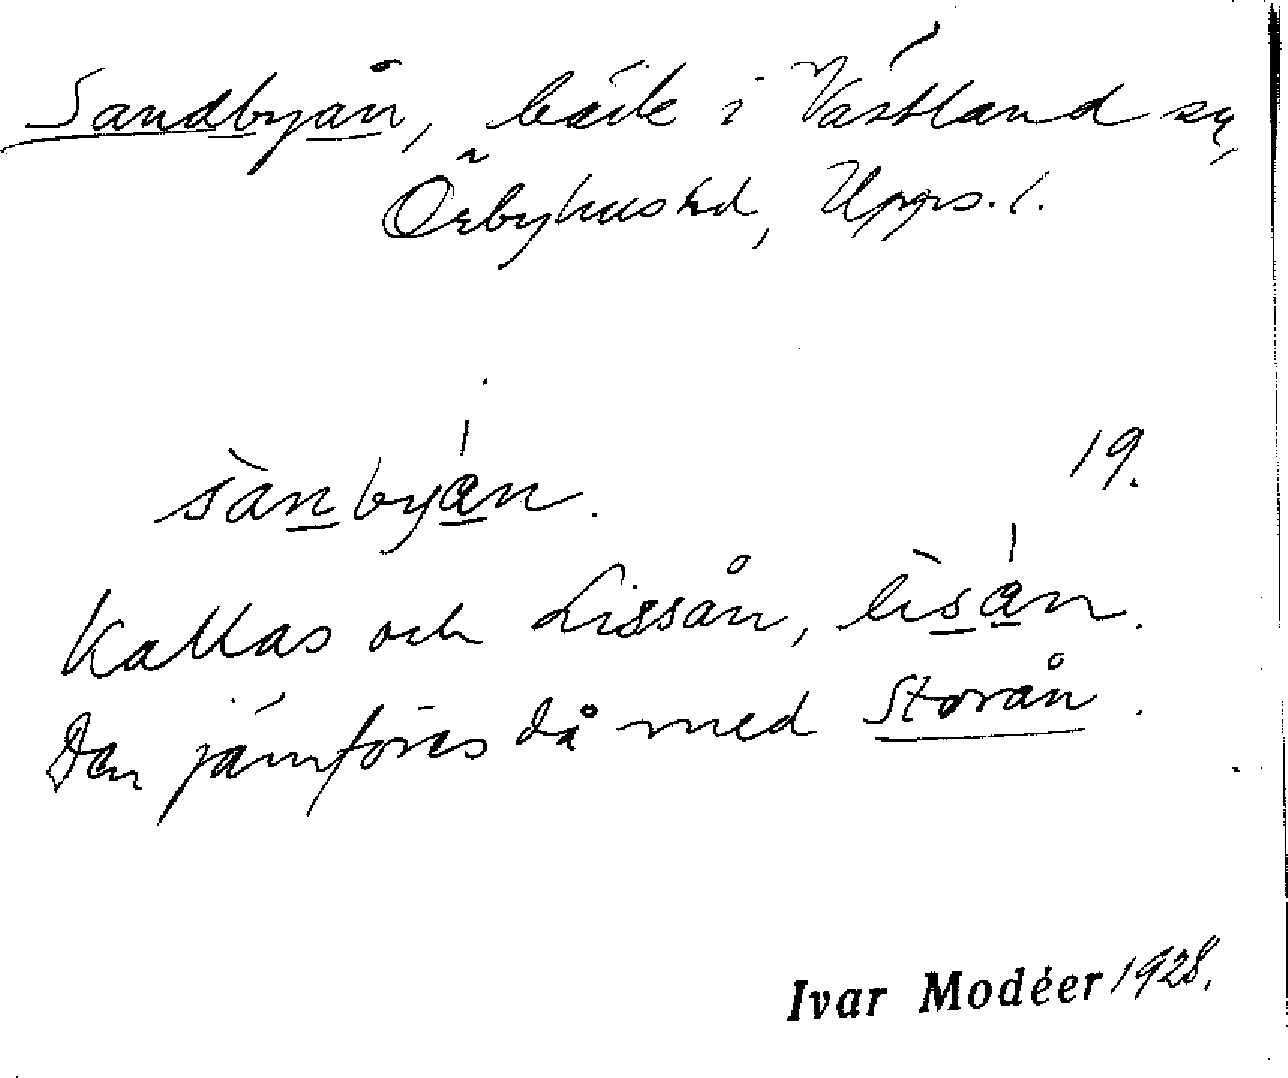 Sandbyån, bäck i Västland sn,
Örbyhus hd, Upps. l.
sànbyán.
19.
Kallas och Lissån, lìsán.
Den jämföres då med Storån.
Ivar Modéer 1928.